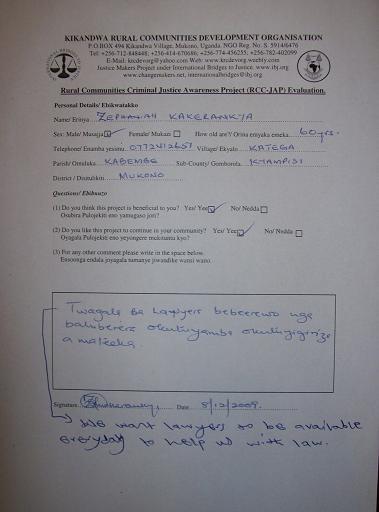 KIKANDWA RURAL COMMUNITIES DEVELOPMENT ORGANISATION
P.O BOX 494 Kikandwa Village, Mukono, Uganda. NGO Reg. No. S. 5914/6476
Tel: +256-712-848448; +256-414-670686; +256-774-456255; +256-782-402099
E-Mail: krcdevorg@yahoo.com Web: www.krcdevorg.weebly.com
Justice Makers Project under International Bridges to Justice: www.ibj.org
www.changemakers.net, internationalbridges@ibj.org
Rural Communities Criminal Justice Awareness Project (RCC-JAP) Evaluation.
Personal Details/ Ebikwatakko
Name/ Erinya ZEPHANIAH KAKERANKYA
Sex: Male/ Musajja Female/ Mukazi How old are?/ Orina emyaka emeka 60yrs.
Telephone/ Enamba yesimu 0772412657 Village/ Ekyalo KATEGA
Parish/ Omuluka KABEMBE Sub-County/ Gombolola KYAMPISI
District / Disitulikiti MUKONO
Questions/ Ebibuuzo
(1) Do you think this project is beneficial to you? Yes/ Yee No/ Nedda
Osubira Pulojekiti eno yamugaso jori?
(2) Do you like this project to continue in your community? Yes/ Yee No/ Nedda
Oyagala Pulojekiti eno yeyongere mukutuntu kyo?
(3) For any other comment please write in the space below.
Ensoonga endala joyagala tumanye jiwandike wansi wano.
Twagala ba Lawyers bebeerewo nga
a mateeka.
Signature Date 8/12/2009.
We want lawyers to be available
everyday to help us with law.